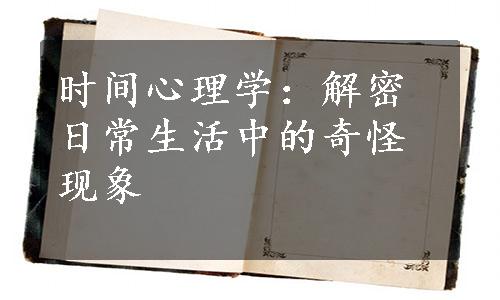 时间心理学：解密
日常生活中的奇怪
现象